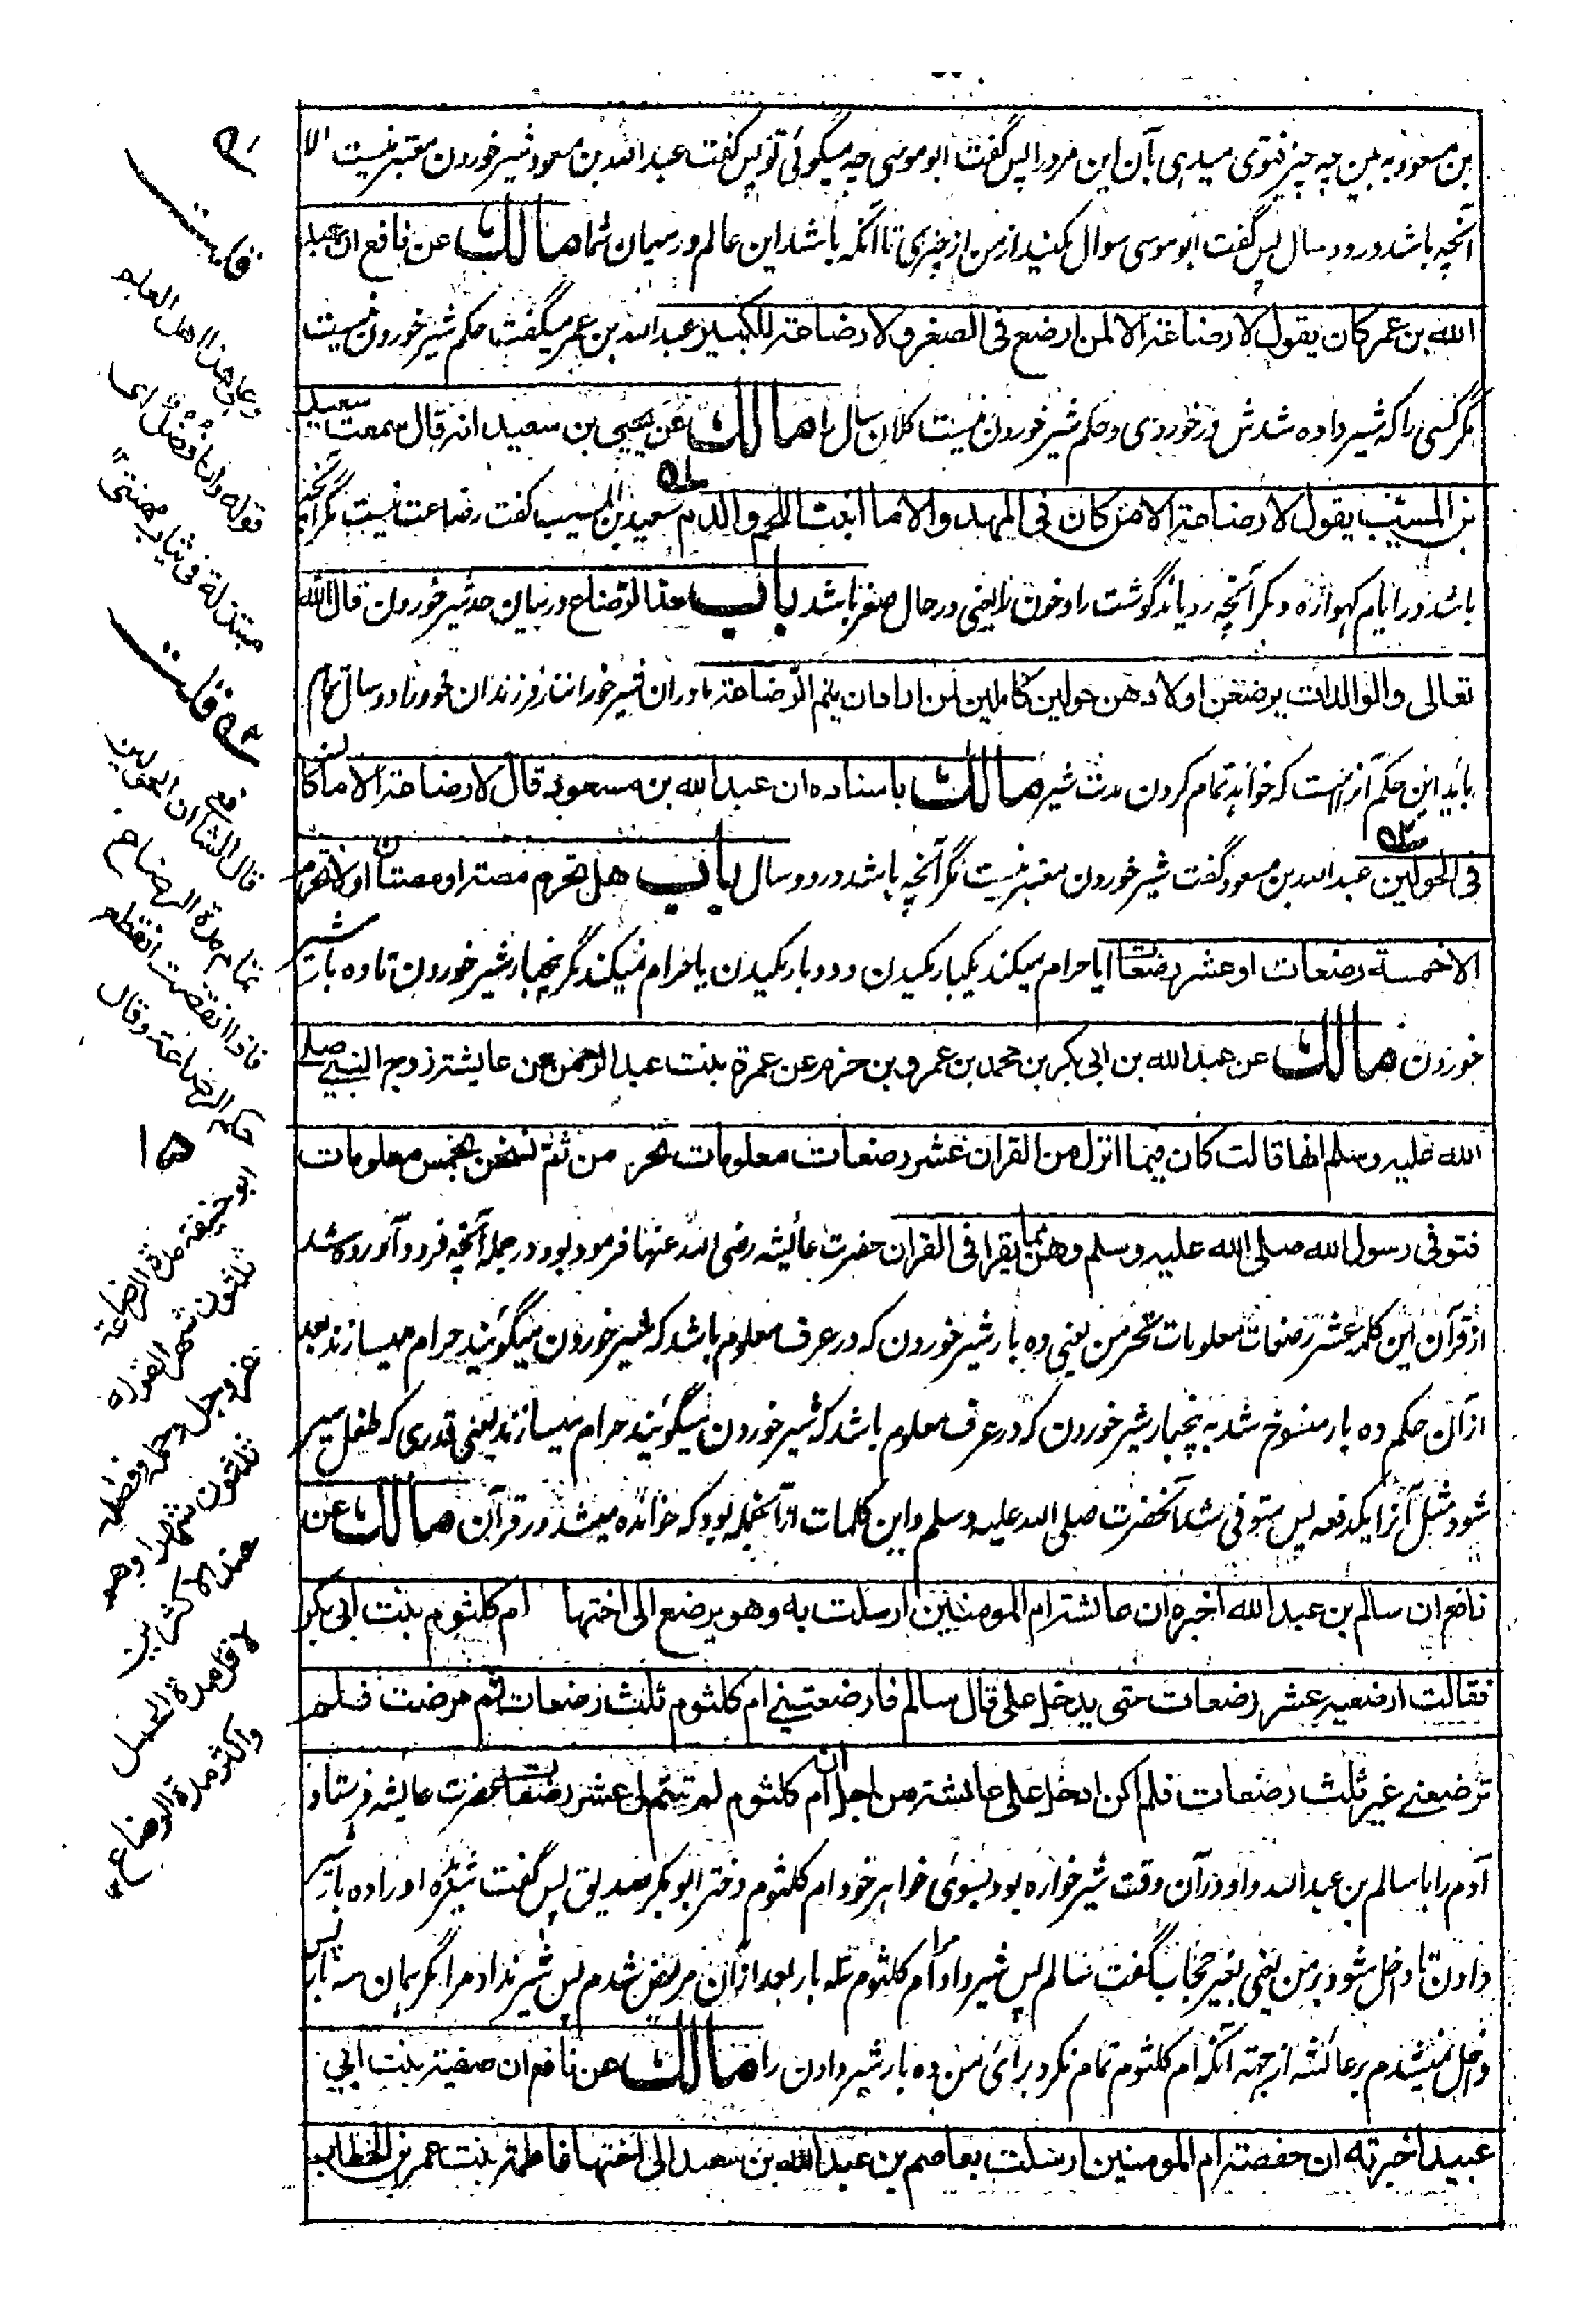 بن مسعود به بین چه چیز فتوی میدهی بآن این مرد را پس گفت ابو موسی چه میگوئی تو پس گفت عبد الله بن مسعود شیر خوردن معتبر نیست الا
آنچه باشد در دو سال پس گفت ابو موسی سوال مکنید از من از چیزی تا آنکه باشد این عالم در میان شما مالك عن نافع ان عبد
الله بن عمر كان يقول لا رضاعة الا لمن ارضع فى الصغر ولا رضاعة للكبير عبد الله بن عمر میگفت حکم شیر خوردن نیست
مگر کسی را که شیر داده شدش در خوردی و حکم شیر خوردن نیست کلان سال را مالك عن يحيى بن سعيد انه قال سمعت سعيد
بن المسيب يقول لا رضاعة الا من كان فى المهد والا ما انبت اللحم والدم سعید بن المسیب گفت رضاعت نیست مگر آنچه
باشد در ایام گهواره و مگر آنچه رویاند گوشت را و خون را یعنی در حال صغر باشد باب هذا الرضاع در بیان حد شیر خوردن قال الله
تعالى والوالدات يرضعن اولادهن حولين كاملين لمن اراد ان يتم الرضاعة مادران شیر خورانند فرزندان خود را دو سال تمام
باید این حکم آنراست که خواهد تمام کردن مدت شیر مالك باسناده ان عبد الله بن مسعود قال لا رضاعة الا ما كان
فى الحولين عبد الله بن مسعود گفت شیر خوردن معتبر نیست مگر آنچه باشد در دو سال باب هل تحرم مصة او مصتان او لا تحرم
الا خمسة رضعات او عشر رضعات آیا حرام میکند یکبار مکیدن و دو بار مکیدن یا حرام نمیکند مگر پنجبار شیر خوردن تا ده بار شیر
خوردن مالك عن عبد الله بن ابى بكر بن محمد بن عمرو بن حزم عن عمرة بنت عبد الرحمن عن عايشة زوج النبي صلى
الله عليه وسلم انها قالت كان فيما انزل من القران عشر رضعات معلومات يحرمن ثم نسخن بخمس معلومات
فتوفى رسول الله صلى الله عليه وسلم وهن مما يقرا فى القران حضرت عائشه رضی الله عنها فرمود بود در جمله آنچه فرود آورده شد
از قرآن این کلمه عشر رضعات معلومات یحرمن یعنی ده بار شیر خوردن که در عرف معلوم باشد که شیر خوردن میگویند حرام میسازند بعد
از آن حکم ده بار منسوخ شد به پنجبار شیر خوردن که در عرف معلوم باشد که شیر خوردن میگویند حرام میسازند یعنی قدری که طفل سیر
شود مثل آنرا یکدفعه پس متوفی شد آنحضرت صلی الله علیه وسلم و این کلمات ازآنجمله بود که خوانده میشد در قرآن مالك عن
نافع ان سالم بن عبد الله اخبره ان عائشة ام المومنين ارسلت به وهو يرضع الى اختها ام كلثوم بنت ابى بكر
فقالت ارضعيه عشر رضعات حتى يدخل على قال سالم فارضعتنى ام كلثوم ثلث رضعات ثم مرضت فلم
ترضعنى غير ثلث رضعات فلم اكن ادخل على عائشة من اجل ان ام كلثوم لم تتم لى عشر رضعات حضرت عایشه فرستاد
آدم را با سالم بن عبد الله و او درآن وقت شیر خواره بود بسوی خواهر خود ام کلثوم دختر ابو بکر صدیق پس گفت شیرده او را ده بار شیر
دادن تا داخل شود بر من یعنی بغیر حجاب گفت سالم پس شیر داد مرا ام کلثوم سه بار بعد ازآن مریض شدم پس شیر نداد مرا مگر همان سه بار پس
داخل نمیشدم بر عائشه از جهته آنکه ام کلثوم تمام نکرد برای من ده بار شیر دادن را مالك عن نافع ان صفية بنت ابى
عبيد اخبرته ان حفصة ام المومنين ارسلت بعاصم بن عبد الله بن سعد الى اختها فاطمة بنت عمر بن الخطاب
قلت
وعلى هذا اهل العلم
قوله وانا فضل اى
مبتذلة فى ثياب مهنتى
قلت
قال الشافعى ان الحولين
تمام مدة الرضاع
فاذا انقضت انقطع
حكم الرضاعة وقال
ابو حنيفة مدة الرضاعة
ثلثون شهرا لقوله
عز وجل وحمله وفصاله
ثلثون شهرا وهو
عند الاكثرين
لاقل مدة الحمل
واكثر مدة الرضاع